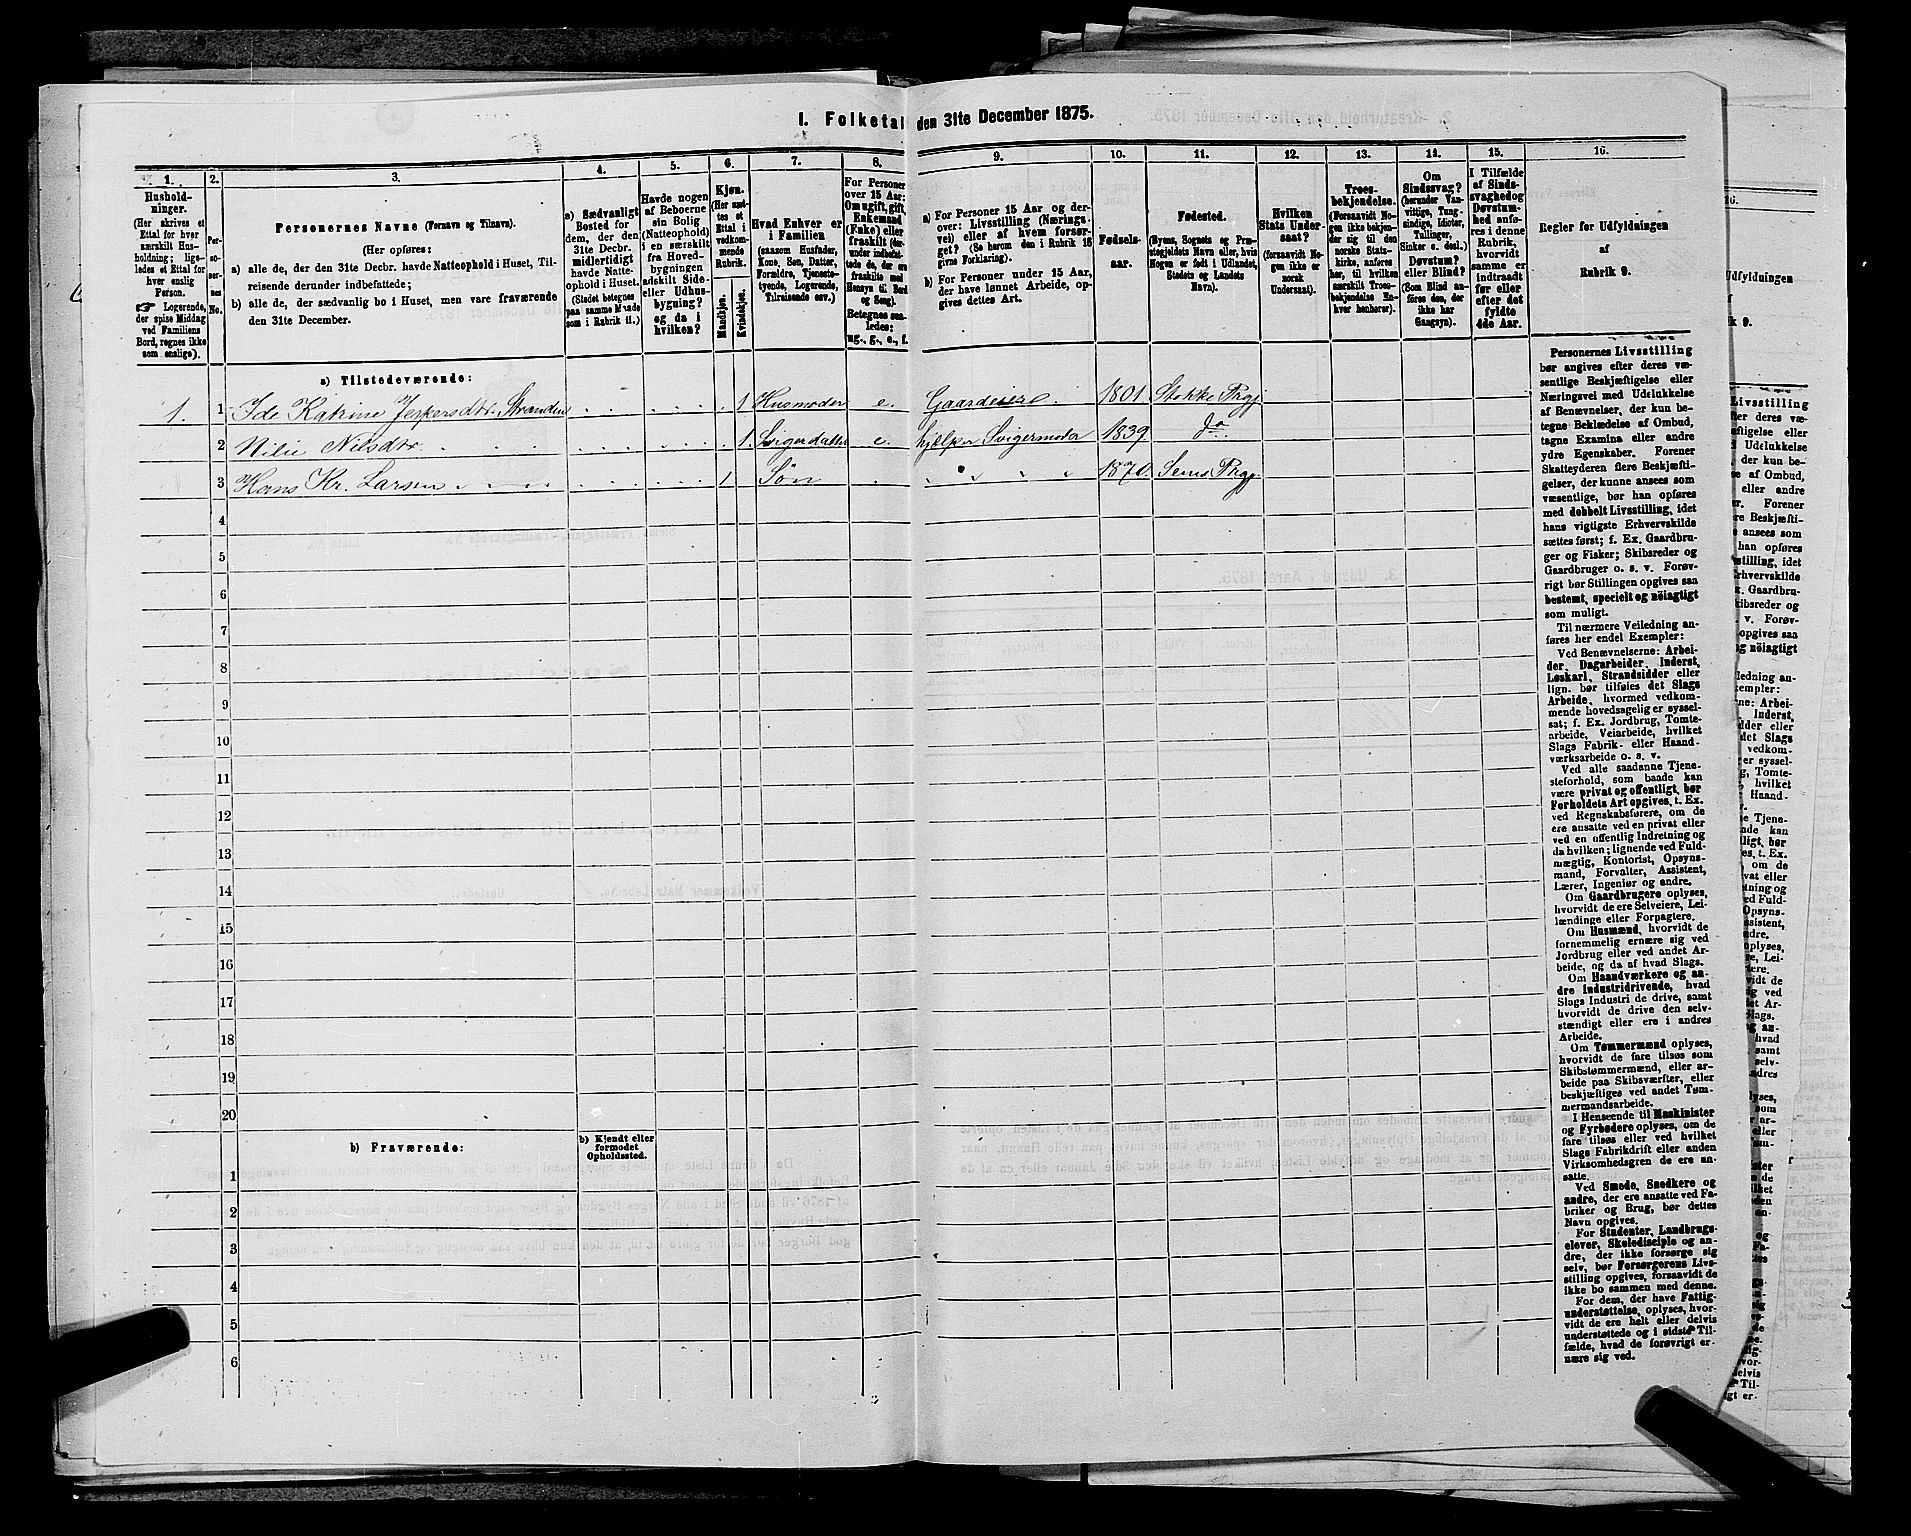 1. Folketal den 31te December 1875.
1. 2. 3. 4. 5. 6. 7. 8. 9. 10. 11. 12. 13. 14. 15. 16.
Hushold-
ninger.
(Her skrives et
Ettal for hver
særskilt Hus-
holdning; lige-
ledes et Ettal for
hver enslig
Person.
☞ Logerende,
der spise Middag
ved Familiens
Bord, regnes ikke
som enslige).
Per-
so-
ner-
nes
No.
Personernes Navne (Fornavn og Tilnavn).
(Her opføres:
a) alle de, der den 31te Decbr. havde Natteophold i Huset, Til-
reisende derunder indbefattede;
b) alle de, der sædvanlig bo i Huset, men vare fraværende
den 31te December.
a) Sædvanligt
Bosted for
dem, der den
31te Decbr.
midlertidigt
havde Natte-
ophold i Huset.
(Stedet betegnes
paa samme Maade
som i Rubrik 11.)
Havde nogen
af Beboerne
sin Bolig
(Natteophold)
i en særskilt
fra Hoved-
bygningen
adskilt Side-
eller Udhus-
bygning?
og da i
hvilken?
Kjøn.
(Her sæt-
tes et
Ettal i
vedkom-
mende
Rubrik.
Mandkjøn.
Kvindekjøn.
Hvad Enhver er
i Familien
(saasom Husfader,
Kone, Søn, Datter,
Forældre, Tjeneste-
tyende, Logerende,
Tilreisende osv.)
For Personer
over 15 Aar:
Om ugift, gift,
Enkemand
(Enke) eller
fraskilt (der-
under indbefat-
tede de, der ere
fraskilte med
Hensyn til Bord
og Seng).
Betegnes saa-
ledes:
ug., g., e., f.
a) For Personer 15 Aar og der-
over: Livsstilling (Nærings-
vei) eller af hvem forsør-
get? (Se herom den i Rubrik 16
givne Forklaring).
b) For Personer under 15 Aar,
der have lønnet Arbeide, op-
gives dettes Art.
Fødsels-
aar.
Fødested.
(Byens, Sognets og Præ-
stegjeldets Navn eller, hvis
Nogen er født i Udlandet,
Stedets og Landets
Navn).
Hvilken
Stats Under-
saat?
(forsaavidt No-
gen ikke er
norsk
Undersaat).
Troes-
bekjendelse.
(Forsaavidt No-
gen ikke bekjen-
der sig til den
norske Stats-
kirke, anføres
her, til hvilken
særskilt Troes-
bekjendelse En-
hver henhører).
Om
Sindssvag?
(herunder Van-
vittige, Tung-
sindige, Idioter,
Tullinger,
Sinker o. desl.)
Døvstum?
eller Blind?
(Som Blind an-
føres den, der
ikke har
Gangsyn).
I Tilfælde
af Sinds-
svaghed og
Døvstum-
hed anfø-
res i denne
Rubrik,
hvorvidt
samme er
indtraadt
før eller
efter det
fyldte
4de Aar.
Regler for Udfyldningen
af
Rubrik 9.
a) Tilstedeværende:
1. 1 Ide Katrine Jespersdtr. Stranden 1 Husmoder e. Gaardeier 1801 Stokke Prgj
2 Nilie Nilsdtr. 1. Svigerdatter e. hjælper Svigermoder 1839 do
3 Hans Kr. Larsen 1 Søn 1870. Sems Prgj
4
5
6
7
8
9
10
11
12
13
14
15
16
17
18
19
20
b) Fraværende:
b) Kjendt eller
formodet
Opholdssted.
1
2
3
4
5
6
Personernes Livsstilling
bør angives efter deres væ-
sentlige Beskjæftigelse eller
Næringsvei med Udelukkelse
af Benævnelser, der kun be-
tegne Beklædelse af Ombud,
tagne Examina eller andre
ydre Egenskaber. Forener
Skatteyderen flere Beskjæfti-
gelser, der kunne ansees som
væsentlige, bør han opføres
med dobbelt Livsstilling, idet
hans vigtigste Erhvervskilde
sættes først; f. Ex. Gaardbru-
ger og Fisker; Skibsreder og
Gaardbruger o. s. v. Forøv-
rigt bør Stillingen opgives saa
bestemt, specielt og nöiagtigt
som muligt.
Til nærmere Veiledning an-
føres her endel Exempler:
Ved Benævnelserne: Arbei-
der, Dagarbeider, Inderst,
Løskarl, Strandsidder eller
lign. bør tilføies det Slags
Arbeide, hvormed vedkom-
mende hovedsagelig er syssel-
sat; f. Ex. Jordbrug, Tomte-
arbeide, Veiarbeide, hvilket
Slags Fabrik- eller Haand-
værksarbeide o. s. v.
Ved alle saadanne Tjene-
steforhold, som baade kan
være privat og offentligt, bør
Forholdets Art opgives, t. Ex.
ved Regnskabsførere, om de
ere ansatte ved en privat eller
ved en offentlig Indretning og
da hvilken; lignende ved Fuld-
mægtig, Kontorist, Opsyns-
mand, Forvalter, Assistent,
Lærer, Ingeniør og andre.
Om Gaardbrugere oplyses,
hvorvidt de ere Selveiere, Lei-
lændinge eller Forpagtere.
Om Husmænd, hvorvidt de
fornemmelig ernære sig ved
Jordbrug eller ved andet Ar-
beide, og da af hvad Slags.
Om Haandværkere og an-
dre Industridrivende, hvad
Slags Industri de drive, samt
hvorvidt de drive den selv-
stændigt eller ere i andres
Arbeide.
Om Tømmermænd oplyses,
hvorvidt de fare tilsøs som
Skibstømmermænd, eller ar-
beide paa Skibsværfter, eller
beskjæftiges ved andet Tøm-
mermandsarbeide.
I Henseende til Maskinister
og Fyrbødere oplyses, om de
fare tilsøs eller ved hvilket
Slags Fabrikdrift eller anden
Virksomhedsgren de ere an-
satte.
Ved Smede, Snedkere og
andre, der ere ansatte ved Fa-
briker og Brug, bør dettes
Navn opgives.
For Studenter, Landbrugs-
elever, Skoledisciple og an-
dre, der ikke forsørge sig
selv, bør Forsørgerens Livs-
stilling opgives, forsaavidt de
ikke bo sammen med denne.
For dem, der have Fattig-
understøttelse, oplyses, hvor-
vidt de ere helt eller delvis
understøttede og i sidste Til-
fælde, hvad de forøvrigt er-
nære sig ved.